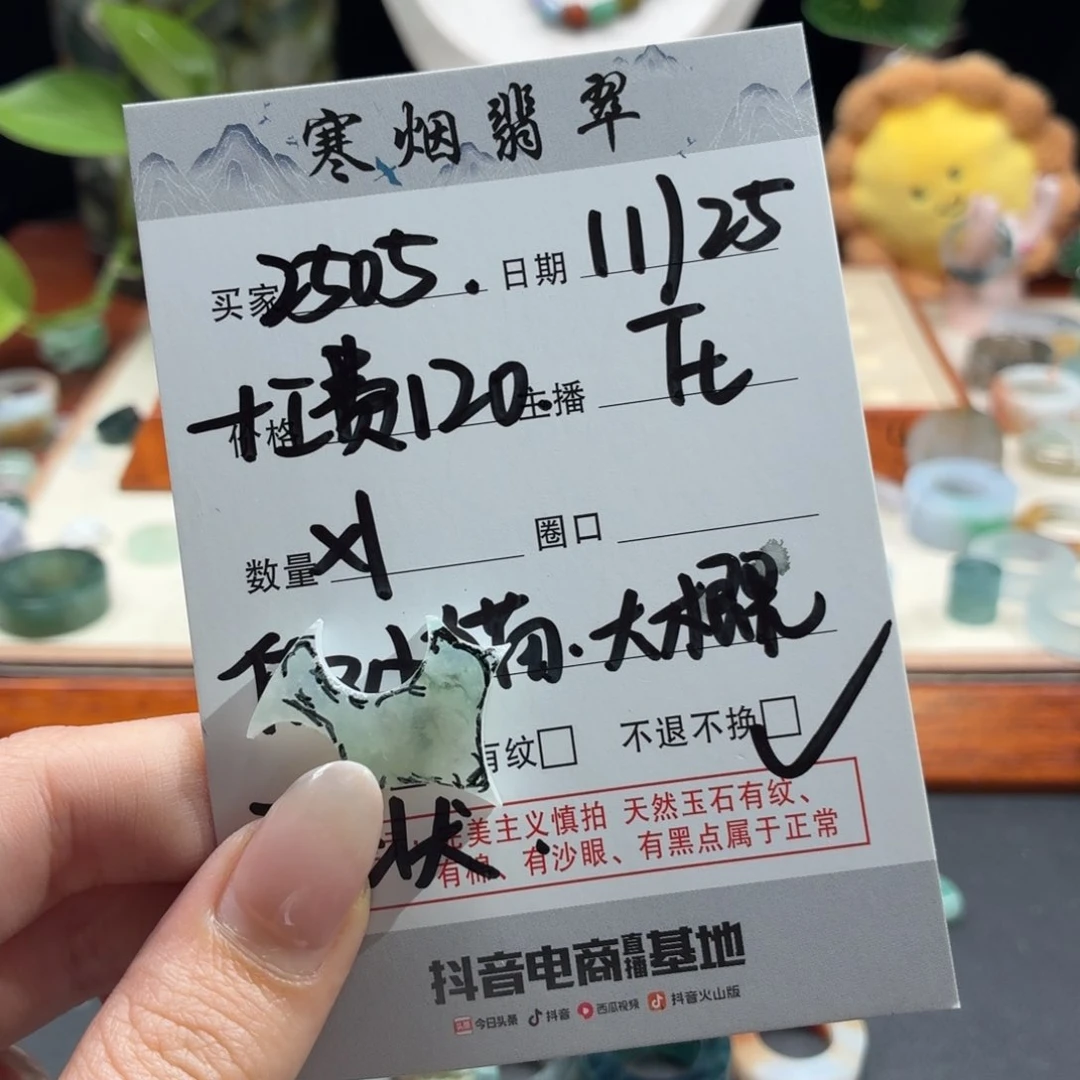 寒烟翡翠
买家 2505. 日期 11/25
价格 工费120. 主播 元
数量 X1 圈口
猫.大概
有纹□ 不退不换□✓
美主义慎拍 天然玉石有纹、
状.
有棉、有沙眼、有黑点属于正常
抖音电商直播基地
头条 今日头条 抖音 西瓜视频 抖音火山版